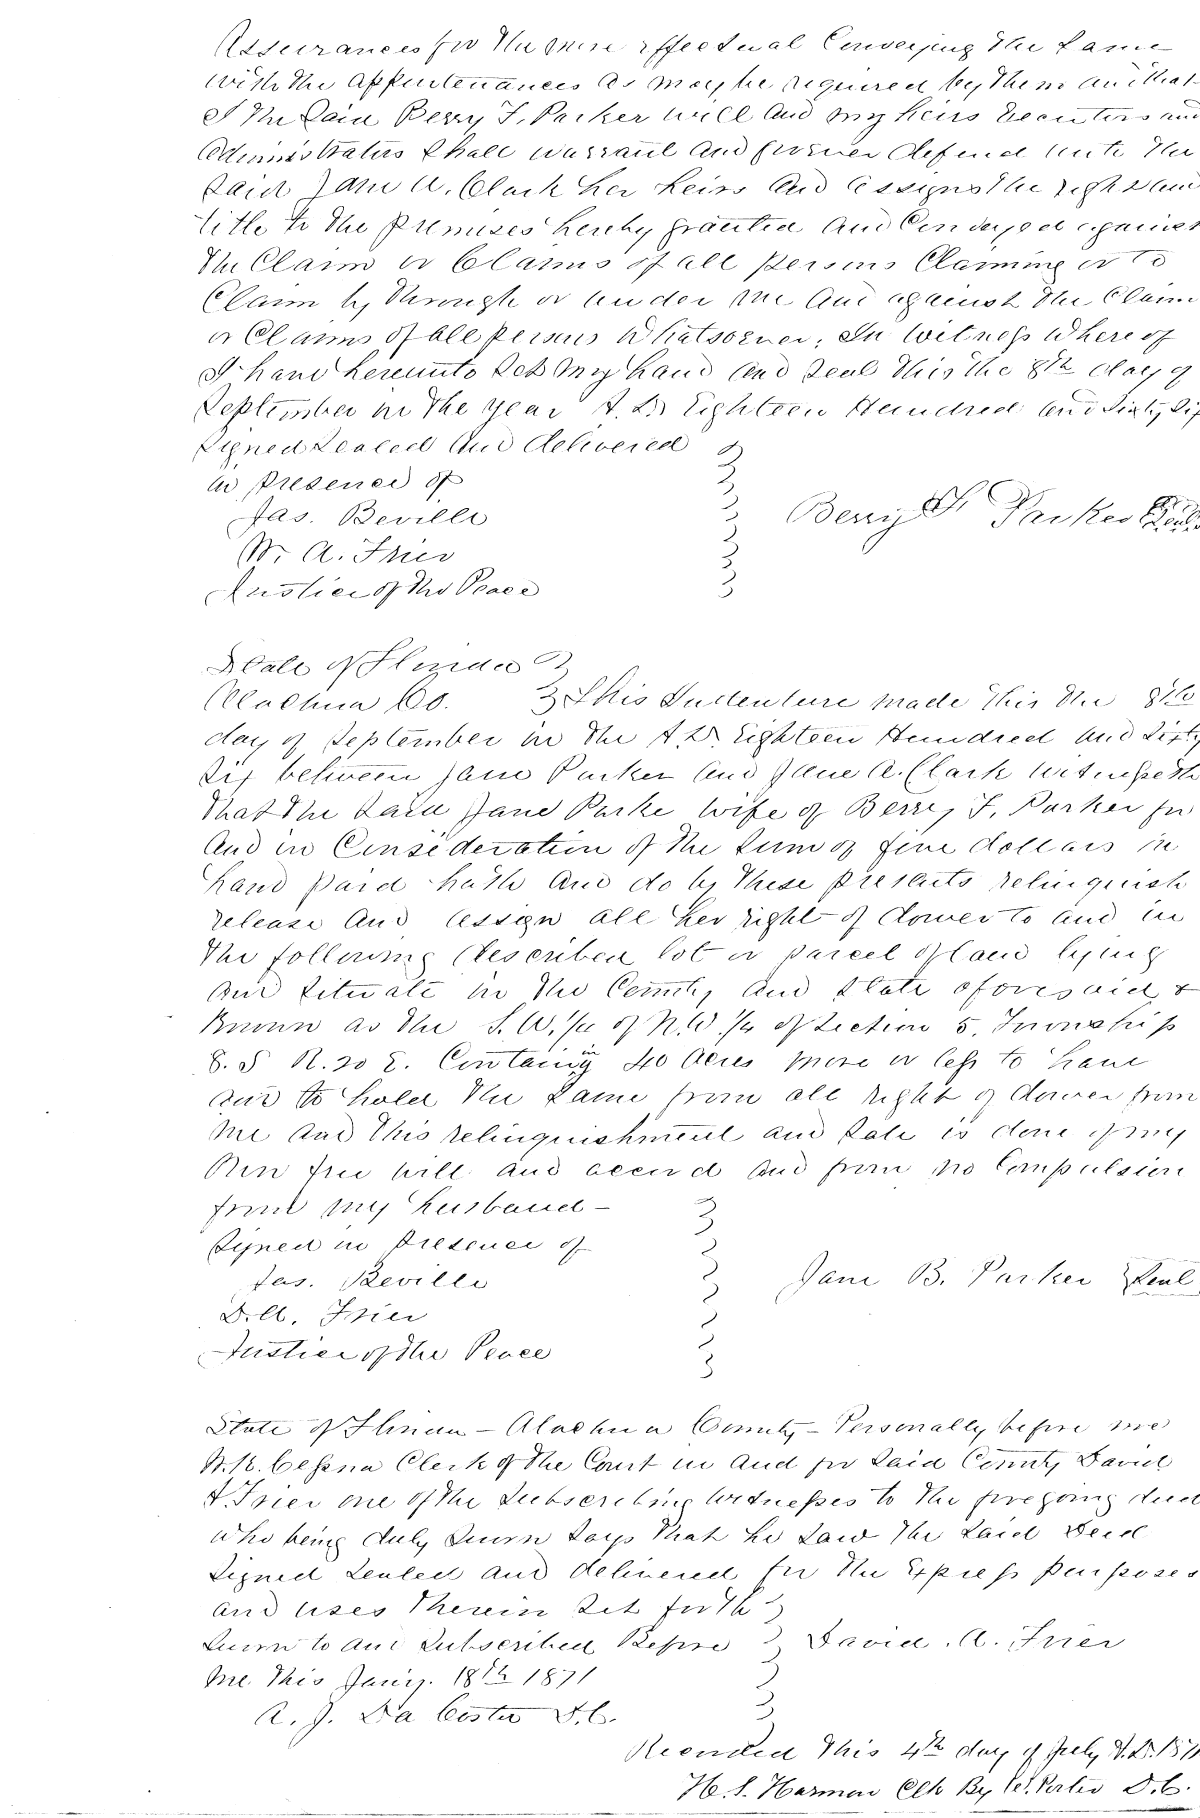 Assurances for the more effectual Conveying the Same
with the appurtenances as may be required by them and that
I the Said Berry F. Parker will and my heirs Executors and
Administrators Shall warrant and forever defend unto the
Said Jane A. Clark her heirs and assigns the right and
title to the premises hereby granted and Conveyed against
the Claim or Claims of all persons Claiming or to
Claim by through or under me and against the Claim
or Claims of all persons Whatsoever. In Witness Where of
I have hereunto Set my hand and Seal this the 8th day of
September in the year A.D. Eighteen Hundred and Sixty Six
Signed Sealed and delivered
in presence of
Jas. Beville
Berry F. Parker Seal
A. Frier
Justice of the Peace
State of Florida
Alachua Co. This Indenture made this the 8th
day of September in the A.D. Eighteen Hundred and Sixty
Six between Jane Parker and Jane A. Clark Witnesseth
that the Said Jane Parke wife of Berry F. Parker for
and in Consideration of the Sum of five dollars in
hand paid hath and do by these presents relinquish
release and assign all her right of dower to and in
the following described lot or parcel of land lying
and Situate in the County and State aforesaid &
Known as the S.W. 1/4 of N.W. 1/4 of Section 5. Township
8. S R. 20 E. Containing 40 acres more or less to have
and to hold the Same from all right of dower from
me and this relinquishment and Sale is done of my
Own free will and accord and from no Compulsion
from my husband -
Signed in presence of
Jas. Beville
Jane B. Parker Seal
D. A. Frier
Justice of the Peace
State of Florida - Alachua County - Personally before me
Cessna Clerk of the Court in and for Said County David
A. Frier one of the Subscribing witnesses to the foregoing deed
who being duly Sworn Says that he Saw the Said Deed
Signed Sealed and delivered for the Express purposes
and uses therein Set forth
Sworn to and Subscribed Before David. A. Frier
me this Jany. 18th 1871
A. J. Da Costa D.C.
Recorded this 4th day of July A.D. 1871
H. S. Harmon Clk By W. Porter D.C.